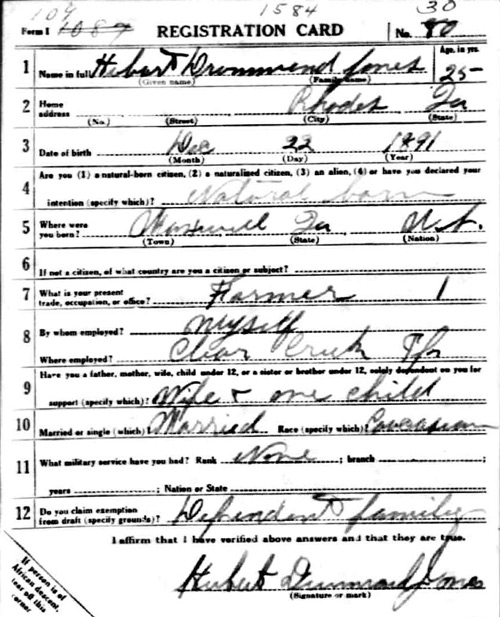 109 1584 30
Form 1 1089 REGISTRATION CARD No. 80
1 Name in full Hubert Drummond Jones Age, in yrs. 25
(Given name) (Family name)
2 Home address Rhodes Ia
(No.) (Street) (City) (State)
3 Date of birth Dec 22 1891
(Month) (Day) (Year)
Are you (1) a natural-born citizen, (2) a naturalized citizen, (3) an alien, (4) or have you declared your
4 intention (specify which)? Natural born
5 Where were you born? Maxwell Ia U.S.
(Town) (State) (Nation)
6 If not a citizen, of what country are you a citizen or subject?
7 What is your present trade, occupation, or office? Farmer 1
8 By whom employed? Myself
Where employed? Clear Creek Tp
Have you a father, mother, wife, child under 12, or a sister or brother under 12, solely dependent on you for
9 support (specify which)? Wife & one child
10 Married or single (which) Married Race (specify which) Caucasian
11 What military service have you had? Rank None ; branch ;
years ; Nation or State
12 Do you claim exemption from draft (specify grounds)? Dependent family
I affirm that I have verified above answers and that they are true.
Hubert Drummond Jones
(Signature or mark)
If person is of
African descent,
tear off this
corner